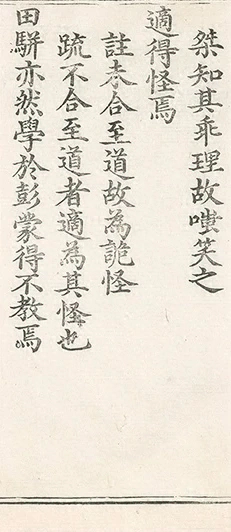 桀知其乖理故嗤笑之
適得怪焉
註未合至道故為詭怪
疏不合至道者適為其怪也
田駢亦然學於彭蒙得不教焉